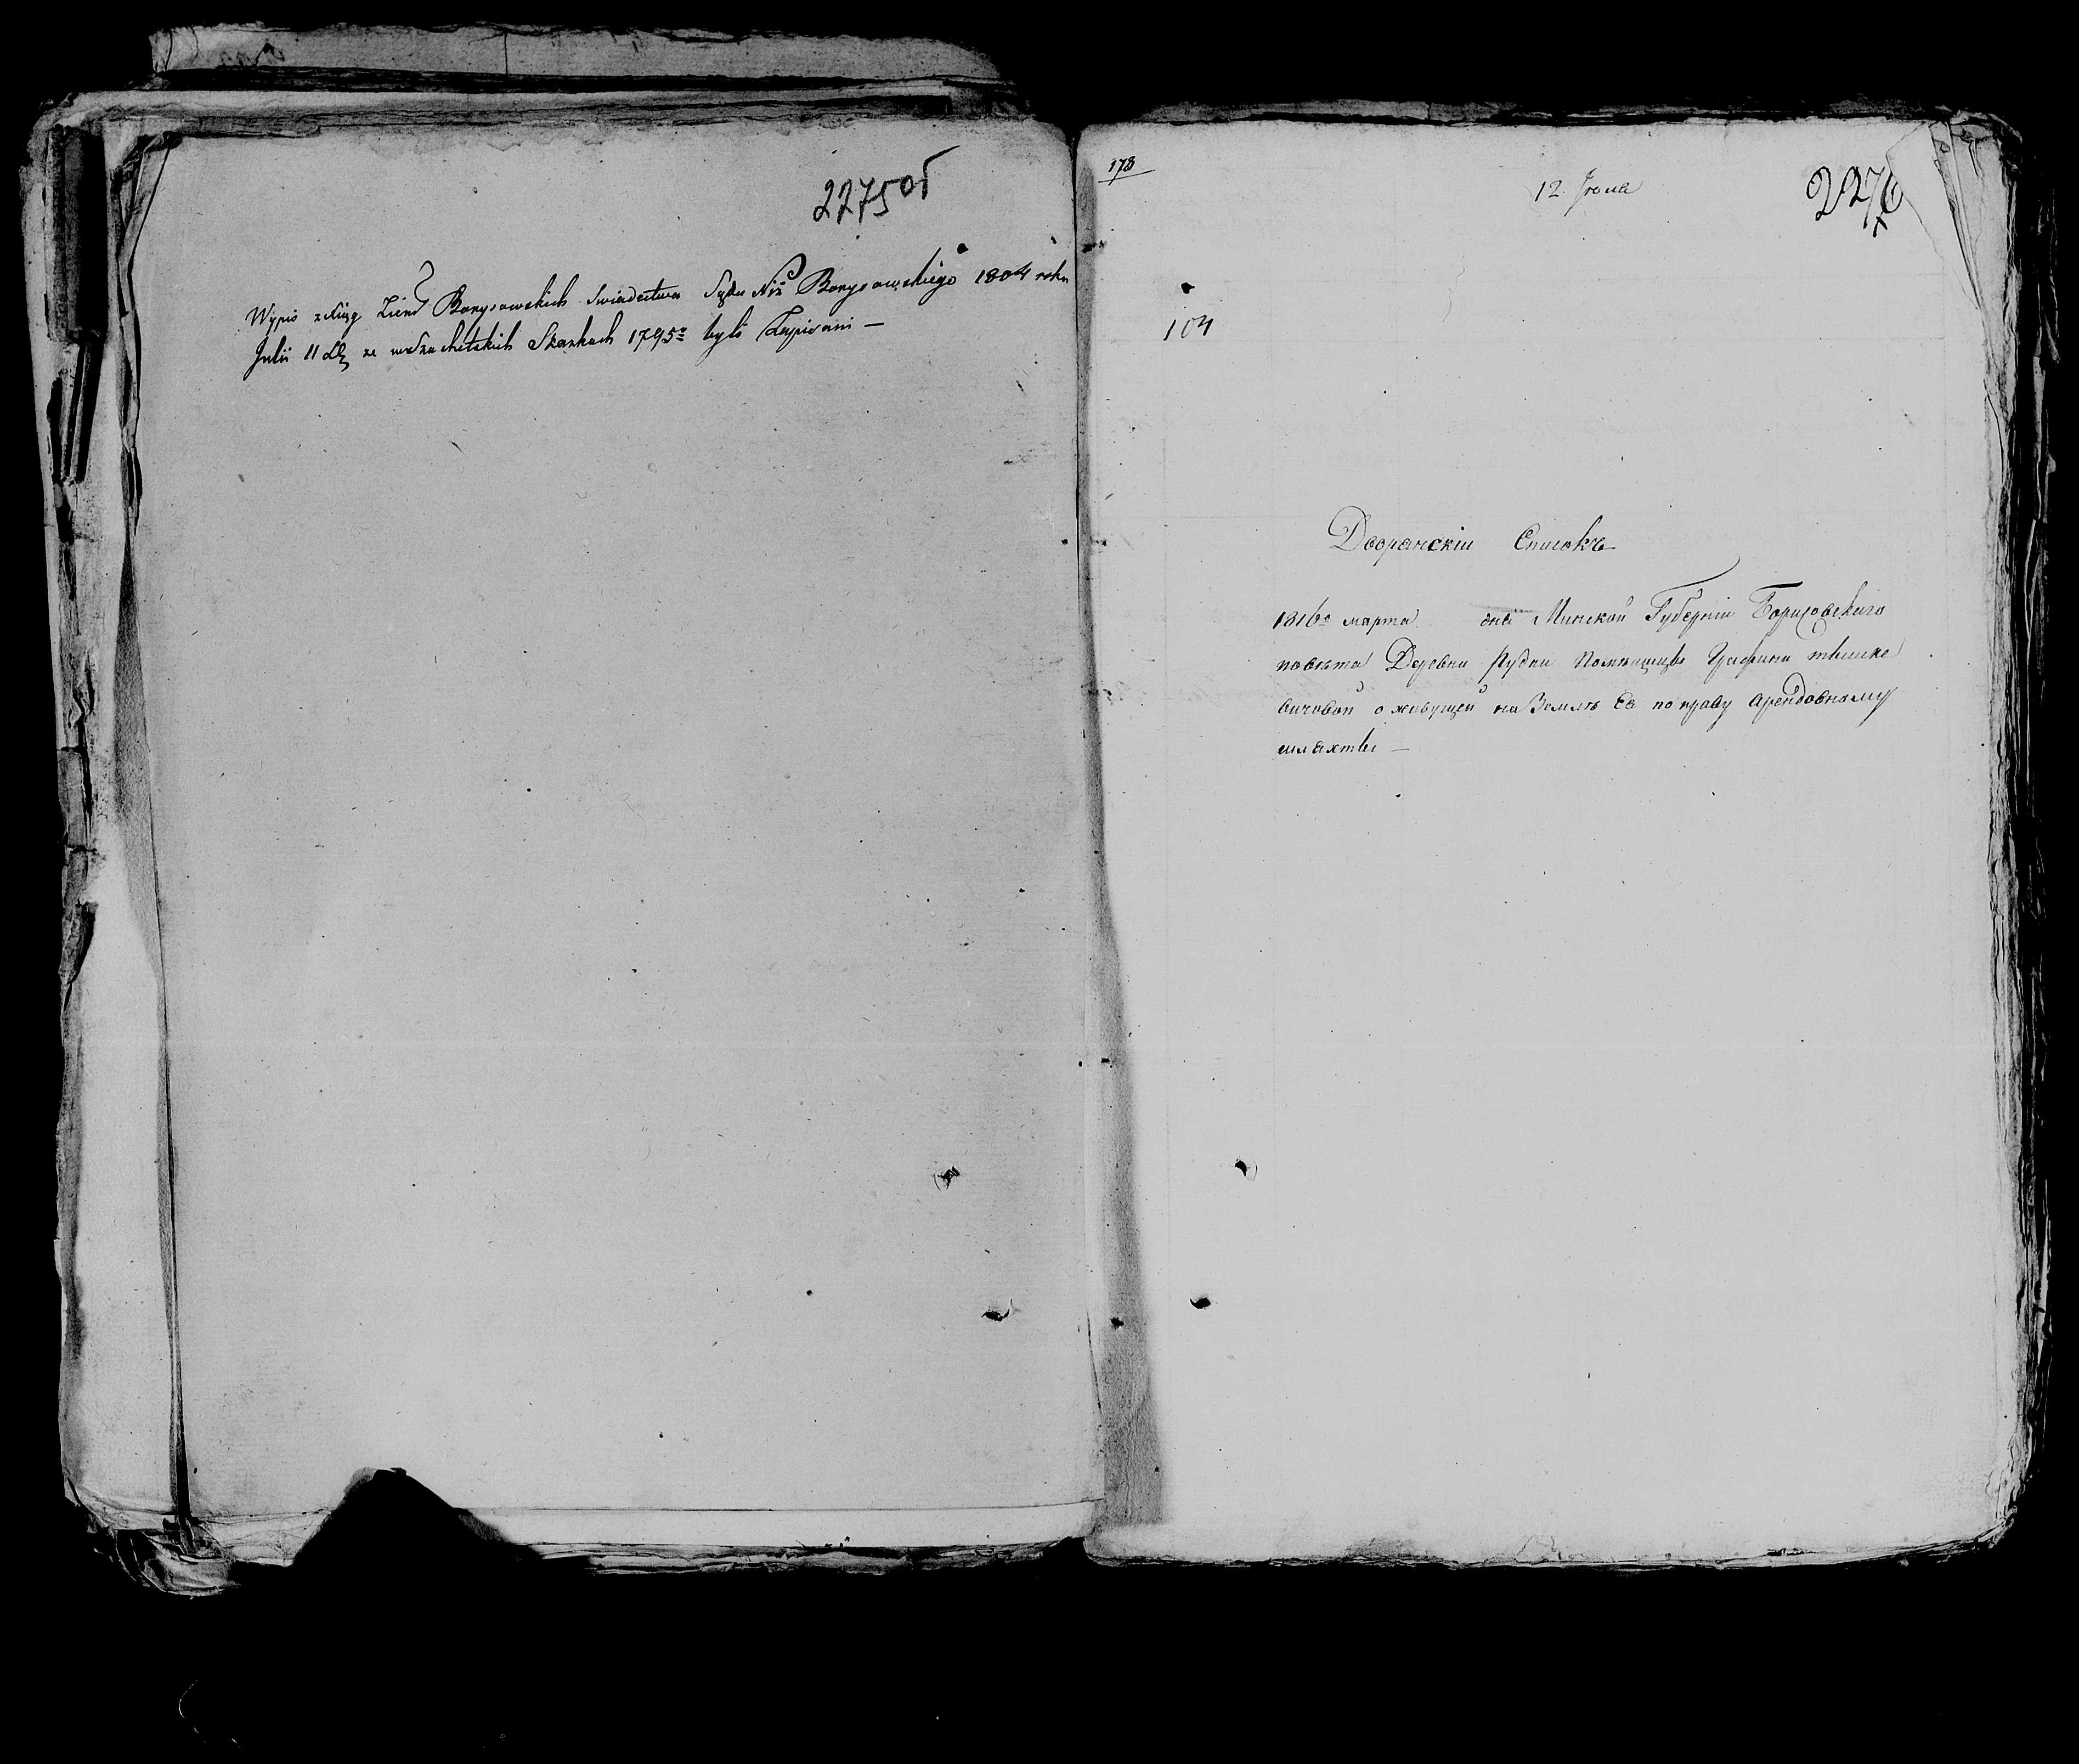 2275об
Wypis z Xiąg Ziem Borysowskich świadectwa Sądu Niż Borysowskiego 1804 roku
Julii 11 D że w Szlachetskich Skazkach 1795го byli Zapisani —
178
12 Июня
2276
104
Дворянскій Списокъ
1816го марта дня Минской Губерніи Борисовского
повѣта Деревни Рудни Помѣщицы Графини тышке
вичовой о живущей на Землѣ Ее по праву арендовному
шляхты —